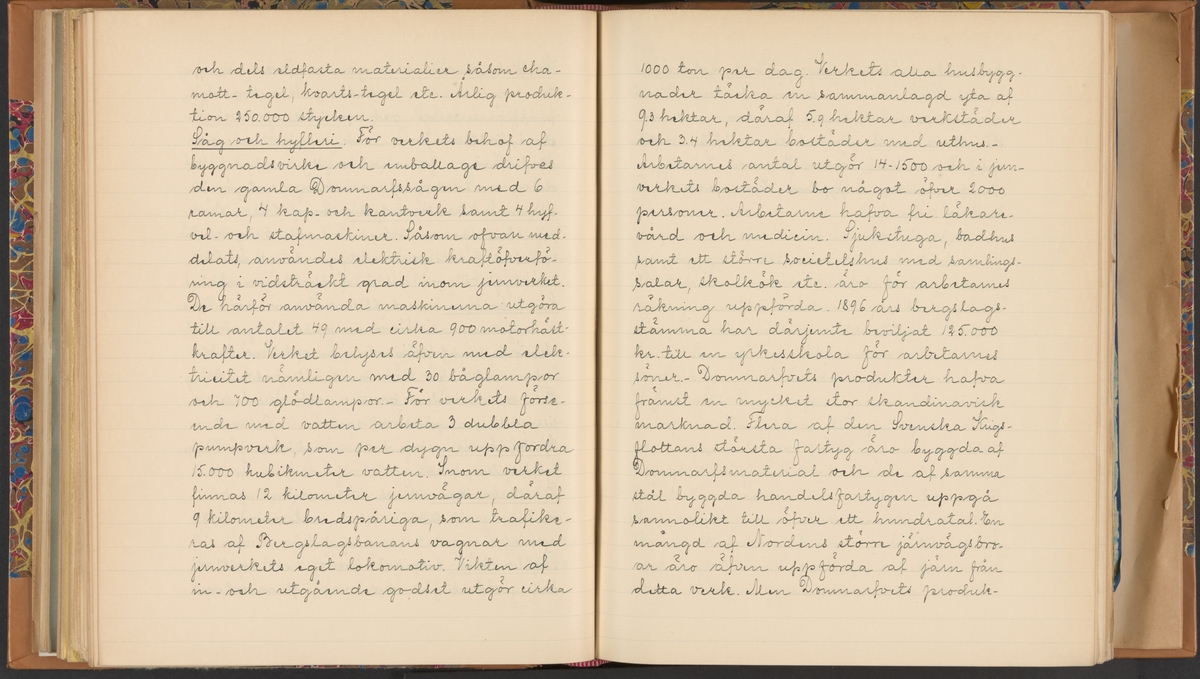 och dels eldfasta materialier såsom cha-
mott-tegel, kvarts-tegel etc. Årlig produk-
tion 250.000 stycken.
Såg och hylleri. För verkets behof af
byggnadsvirke och emballage drifves
den gamla Domnarfssågen med 6
ramar, 4 kap- och kantverk samt 4 hyf-
vel- och stafmaskiner. Såsom ofvan med-
delats, användes elektrisk kraftöfverfö-
ring i vidsträckt grad inom jernverket.
De härför använda maskinerna utgöra
till antalet 49 med cirka 900 motorhäst-
krafter. Verket belyses äfven med elek-
tricitet nämligen med 30 båglampor
och 700 glödlampor.- För verkets förse-
ende med vatten arbeta 3 dubbla
pumpverk, som per dygn uppfordra
15.000 kubikmeter vatten. Inom verket
finnas 12 kilometer jernvägar, däraf
9 kilometer bredspåriga, som trafike-
ras af Bergslagsbanans vagnar med
jernverkets eget lokomotiv. Vikten af
in- och utgående godset utgör cirka
1000 ton per dag. Verkets alla husbygg-
nader täcka en sammanlagd yta af
9.3 hektar, däraf 5.9 hektar verkstäder
och 3.4 hektar bostäder med uthus.-
Arbetarnes antal utgör 14-1500 och i jern-
verkets bostäder bo något öfver 2000
personer. Arbetarne hafva fri läkare-
vård och medicin. Sjukstuga, badhus
samt ett större societetshus med samlings-
salar, skolkök etc. äro för arbetarnes
räkning uppförda. 1896 års bergslags-
stämma har därjemte beviljat 125.000
kr. till en yrkesskola för arbetarnes
söner.- Domnarfvets produkter hafva
främst en mycket stor skandinavisk
marknad. Flera af den Svenska Krigs-
flottans största fartyg äro byggda af
Domnarfsmaterial och de af samma
stål byggda handelsfartygen uppgå
sannolikt till öfver ett hundratal. En
mängd af Nordens större järnvägsbro-
ar äro äfven uppförda af järn från
detta verk. Men Domnarfvets produk-